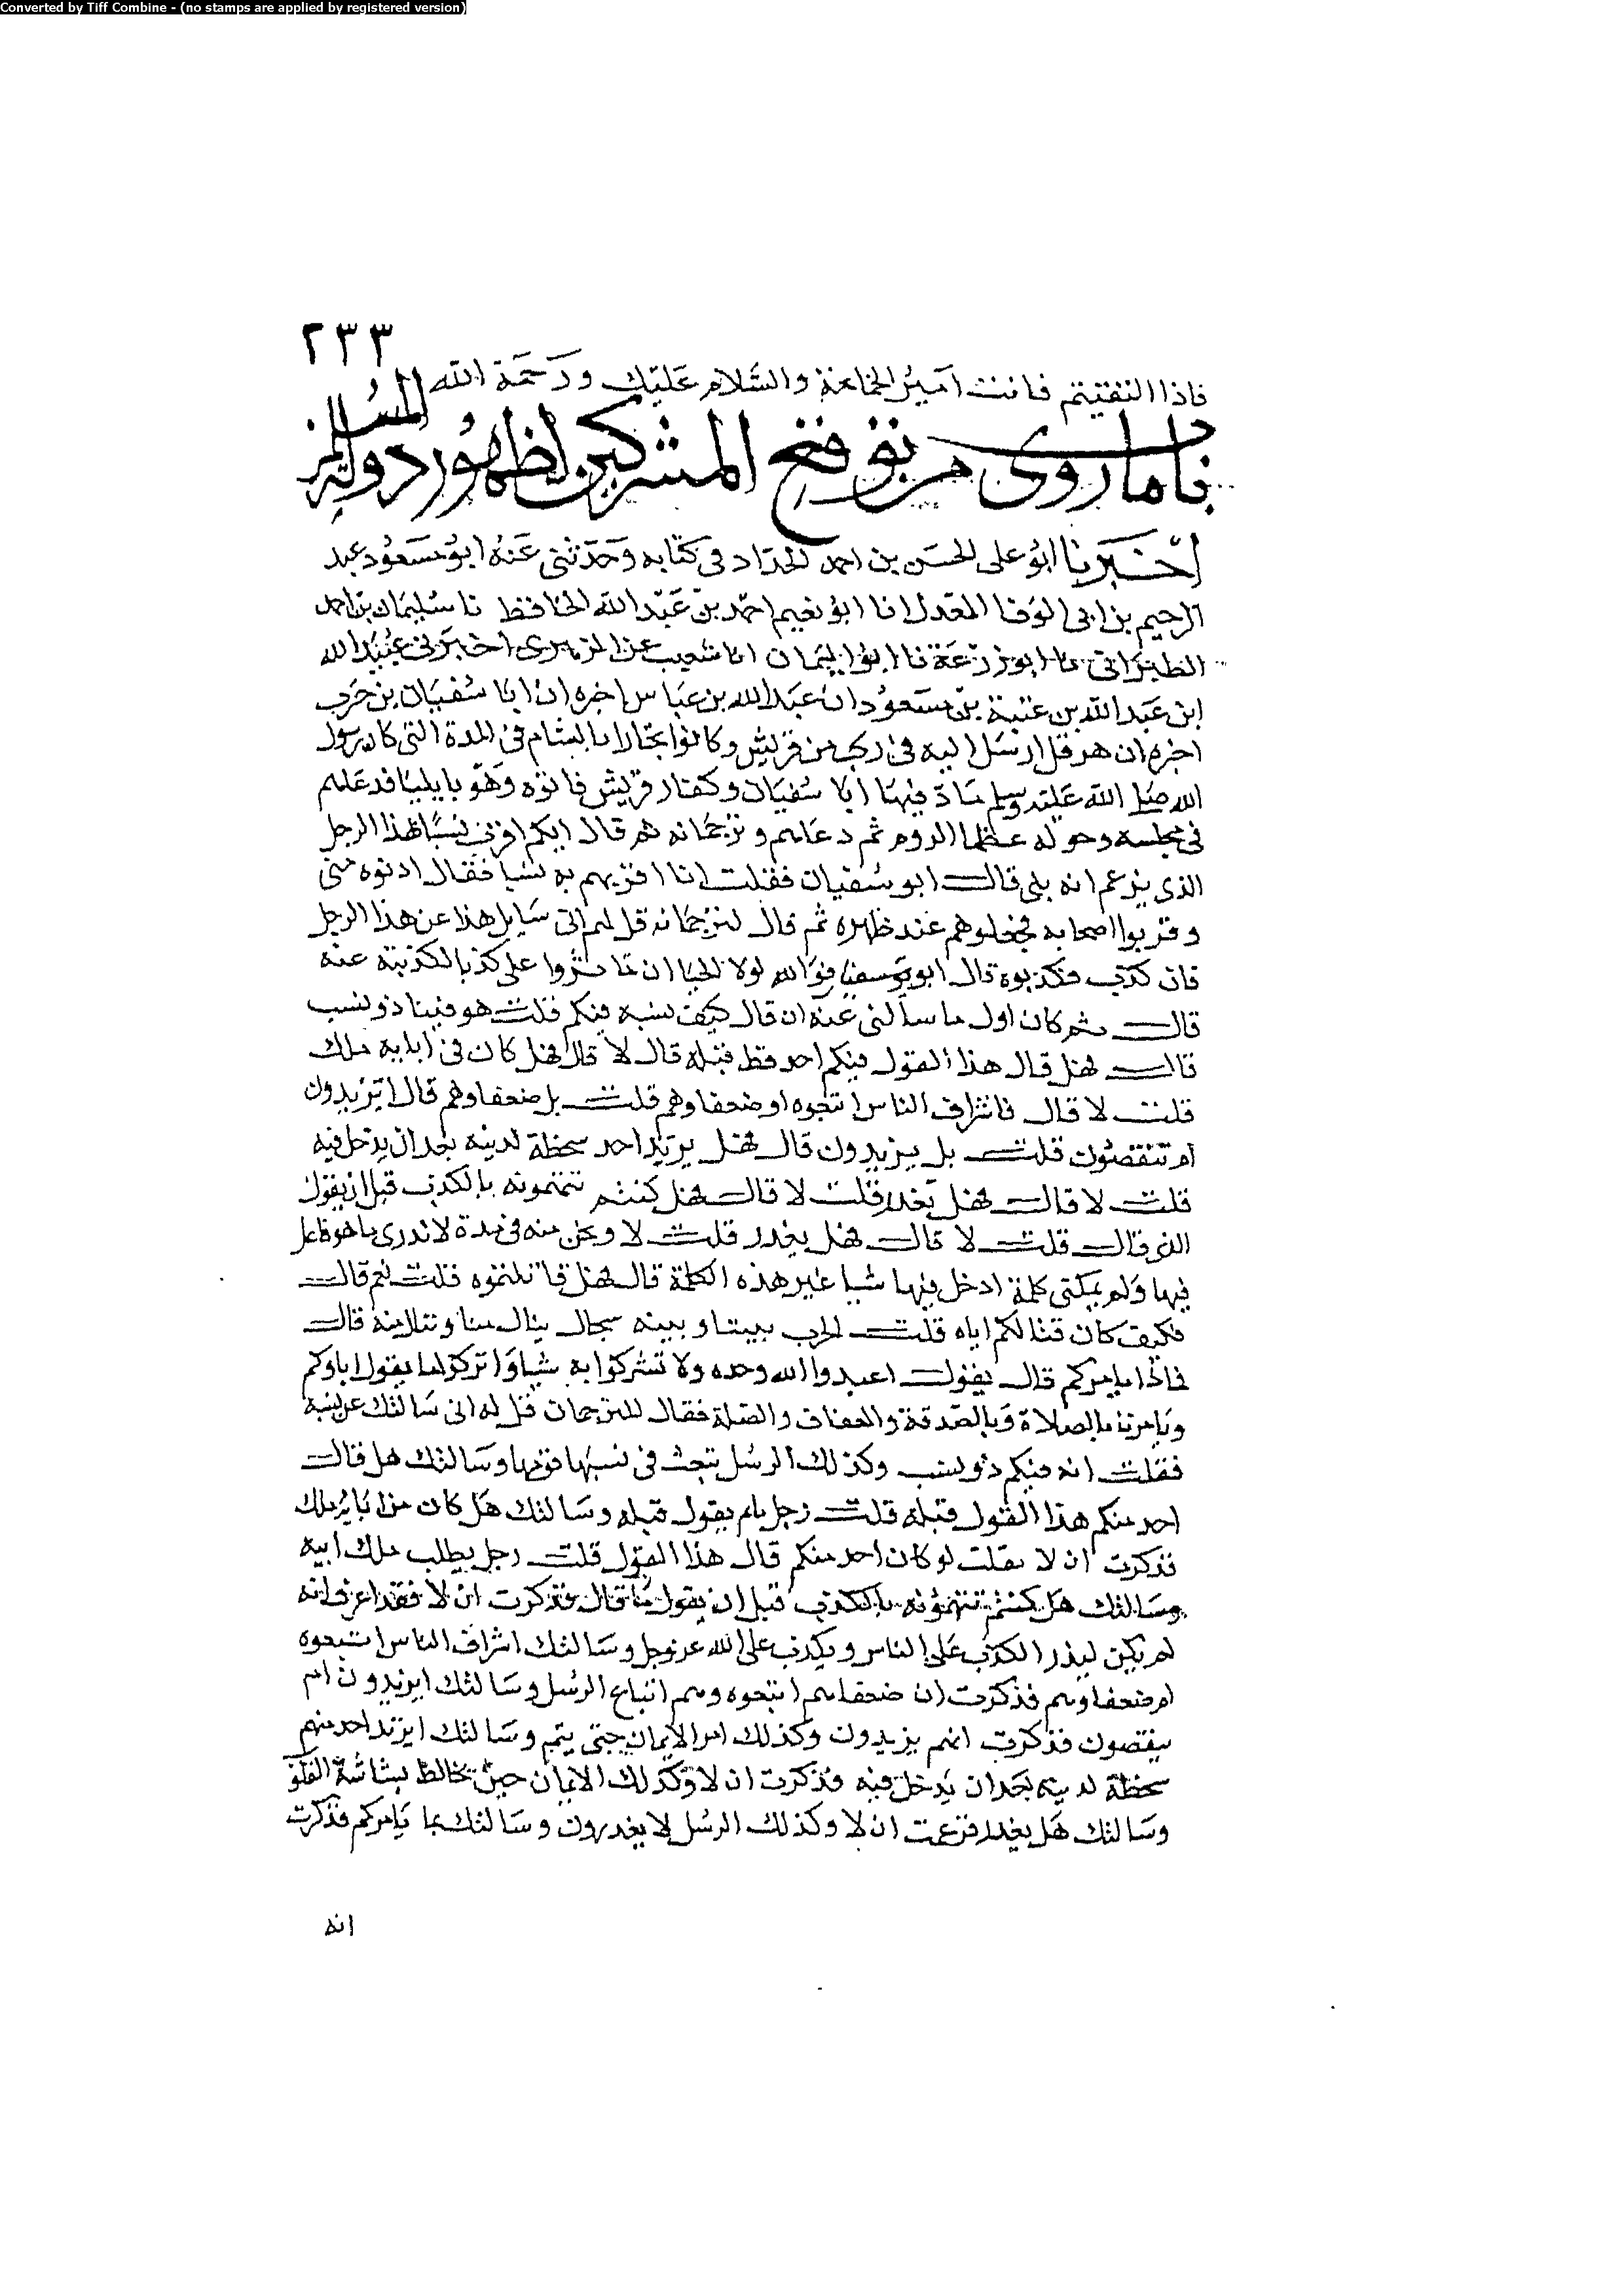 Converted by Tiff Combine - (no stamps are applied by registered version)
٢٣٣
فاذا التقيتم فانت امير الجماعة والسلام عليك ورحمة الله
باب ما روى من توقع المشركين لظهور دولة المسلمين
اخبرنا ابو على الحسن بن احمد الحداد فى كتابه وحدثنى عنه ابو مسعود عبد
الرحيم بن ابى الوفا المعدل انا ابو نعيم احمد بن عبد الله الحافظ نا سليمان بن احمد
الطبرانى نا ابو زرعة نا ابو اليمان انا شعيب عن الزهرى اخبرنى عبيد الله
ابن عبد الله بن عتبة بن مسعود ان عبد الله بن عباس اخبره ان ابا سفيان بن حرب
اخبره ان هرقل ارسل اليه فى ركب من قريش وكانوا تجارا بالشام فى المدة التى كان رسول
الله صلى الله عليه وسلم ماد فيها ابا سفيان وكفار قريش فاتوه وهو بايليا فدعاهم
فى مجلسه وحوله عظما الروم ثم دعاهم وترجمانه ثم قال ايكم اقرب نسبا لهذا الرجل
الذى يزعم انه نبى قال ابو سفيان فقلت انا اقربهم به نسبا فقال ادنوه منى
وقربوا اصحابه فجعلوهم عند ظهره ثم قال لترجمانه قل لهم انى سايل هذا عن هذا الرجل
فان كذب فكذبوه قال ابو سفين فوالله لولا الحيا ان ياثروا على كذبا لكذبته عنه
قال ثم كان اول ما سالنى عنه ان قال كيف نسبه فيكم قلت هو فينا ذو نسب
قال فهل قال هذا القول منكم احد قط قبله قال لا قال فهل كان فى ابايه ملك
قلت لا قال فاشراف الناس اتبعوه او ضعفاوهم قلت بل ضعفاوهم قال ايزيدون
ام ينقصون قلت بل يزيدون قال فهل يرتد احد سخطة لدينه بعد ان يدخل فيه
قلت لا قال فهل يغدر قلت لا قال فهل كنتم تتهمونه بالكذب قبل ان يقول
الذى قال قلت لا قال فهل يغدر قلت لا ونحن منه فى مدة لا ندرى ما هو فاعل
فيها ولم يمكنى كلمة ادخل فيها شيا غير هذه الكلمة قال فهل قاتلتموه قلت نعم قال
فكيف كان قتالكم اياه قلت الحرب بيننا وبينه سجال ينال منا وننال منه قال
فماذا يامركم قال يقول اعبدوا الله وحده ولا تشركوا به شيا واتركوا ما يقول اباوكم
ويامرنا بالصلاة وبالصدقة والعفاف والصلة فقال للترجمان قل له انى سالتك عن نسبه
فقلت انه فيكم ذو نسب وكذلك الرسل تبعث فى نسب قومها وسالتك هل قال
احد منكم هذا القول قبله قلت رجل يقول قبله وسالتك هل كان من ابايه ملك
فذكرت ان لا فقلت لو كان احد منكم قال هذا القول قلت رجل يطلب ملك ابيه
وسالتك هل كنتم تتهمونه بالكذب قبل ان يقول ما قال فذكرت ان لا فقد اعرف انه
لم يكن ليذر الكذب على الناس ويكذب على الله عز وجل وسالتك اشراف الناس اتبعوه
ام ضعفاوهم فذكرت ان ضعفاهم اتبعوه وهم اتباع الرسل وسالتك ايزيدون ام
ينقصون فذكرت انهم يزيدون وكذلك امر الايمان حتى يتم وسالتك ايرتد احد منهم
سخطة لدينه بعد ان يدخل فيه فذكرت ان لا وكذلك الايمان حين تخالط بشاشة القلوب
وسالتك هل يغدر فزعمت ان لا وكذلك الرسل لا يغدرون وسالتك بما يامركم فذكرت
انه